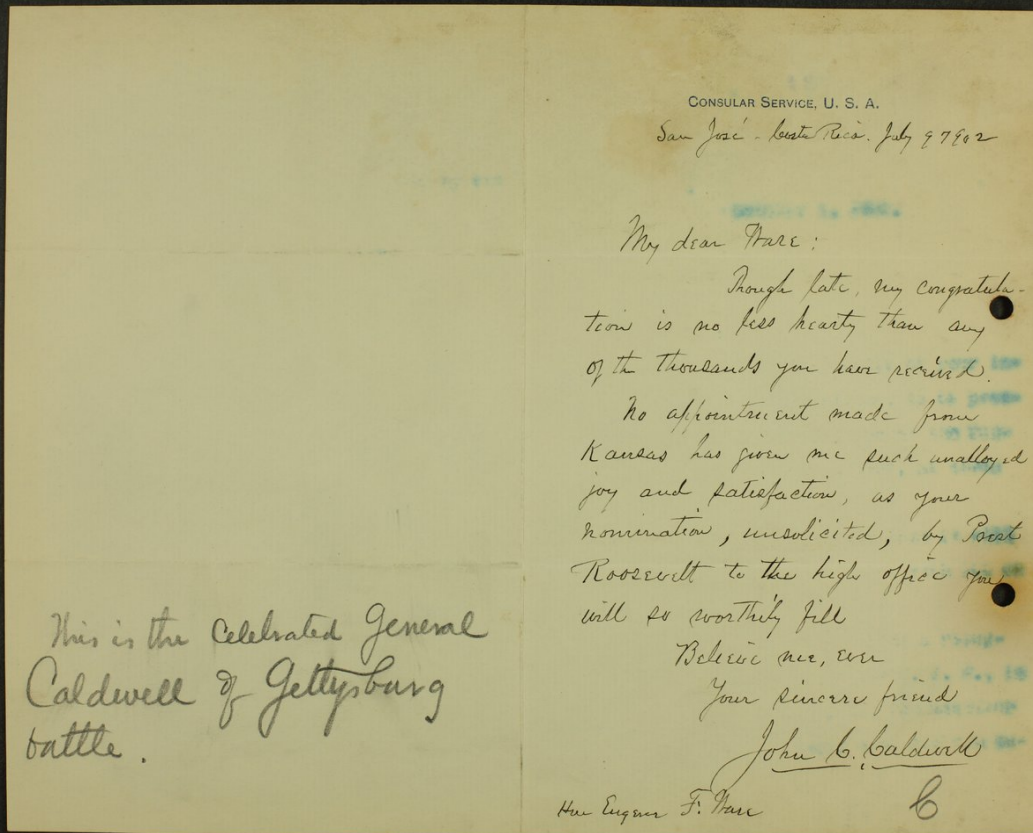 This is the celebrated General
Caldwell of Gettysburg
battle.
CONSULAR SERVICE, U. S. A.
San José - Costa Rica. July 9 1902
My dear Ware:
Though late, my congratula-
tion is no less hearty than any
of the thousands you have received.
No appointment made from
Kansas has given me such unalloyed
joy and satisfaction, as your
nomination, unsolicited, by Prest
Roosevelt to the high office you
will so worthily fill
Believe me, ever
Your sincere friend
John C. Caldwell
Hon Eugene F. Ware
C